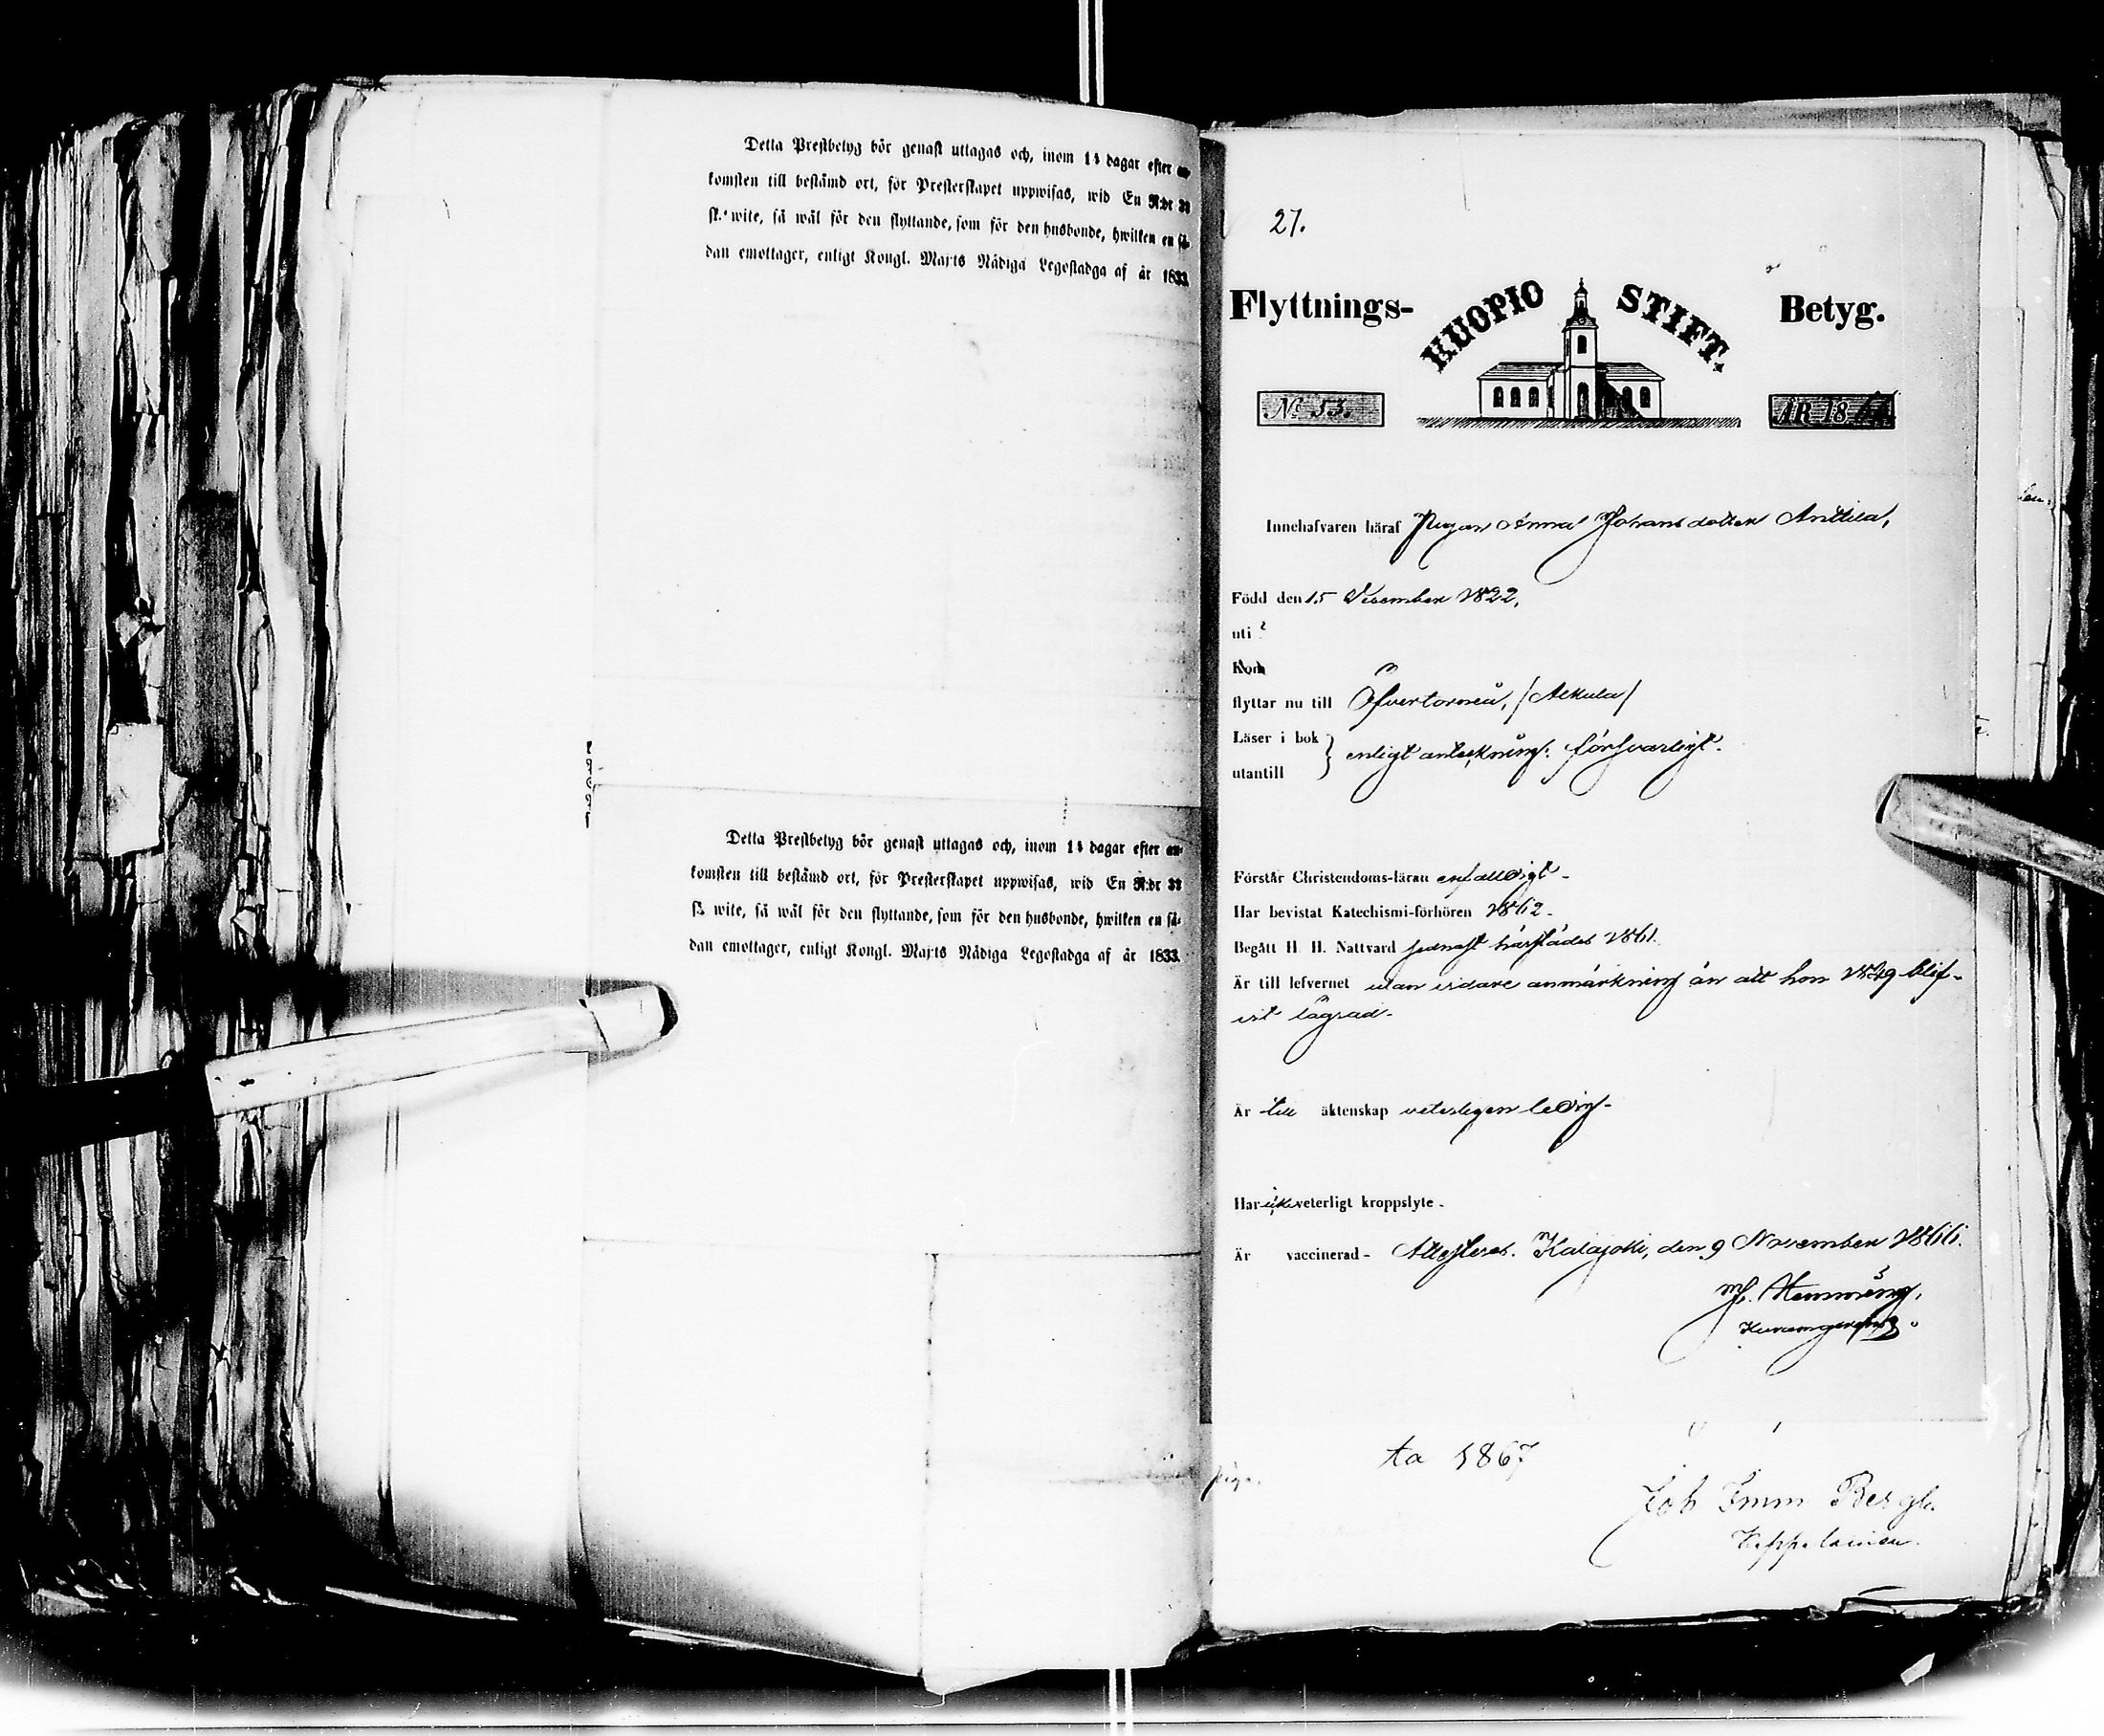 Detta Prestbetyg bör genast uttagas och, inom 14 dagar efter an-
komsten till bestämd ort, för Presterskapet uppwisas, wid En R:dr 32
sk. wite, så wäl för den flyttande, som för den husbonde, hwilken en så-
dan emottager, enligt Kongl. Maj:ts Nådiga Legostadga af år 1833.
Detta Prestbetyg bör genast uttagas och, inom 14 dagar efter an-
komsten till bestämd ort, för Presterskapet uppwisas, wid En R:dr 32
sk wite, så wäl för den flyttande, som för den husbonde, hwilken en så-
dan emottager, enligt Kongl. Maj:ts Nådiga Legostadga af år 1833.
27.
Flyttnings- KUOPIO STIFT. Betyg.
No 53. ÅR 1866
Innehafvaren häraf Pigan Anna Johansdotter Anttila,
Född den 15 December 1822,
uti ?
Kom
flyttar nu till Öfvertorneå, /Alkula/
Läser i bok } enligt anteckning: försvarligt.
utantill
Förstår Christendoms-läran enfaldigt.
Har bevistat Katechismi-förhören 1862.
Begått H. H. Nattvard sednast härstädes 1861.
Är till lefvernet utan vidare anmärkning än att hon 1849 blif-
vit lägrad.
Är till äktenskap veterligen ledig.
Har icke veterligt kroppslyte.
Är vaccinerad - Attesteras. Kalajoki, den 9 November 1866.
ta 1867
Joh Imm Bergh
Kappalainen.